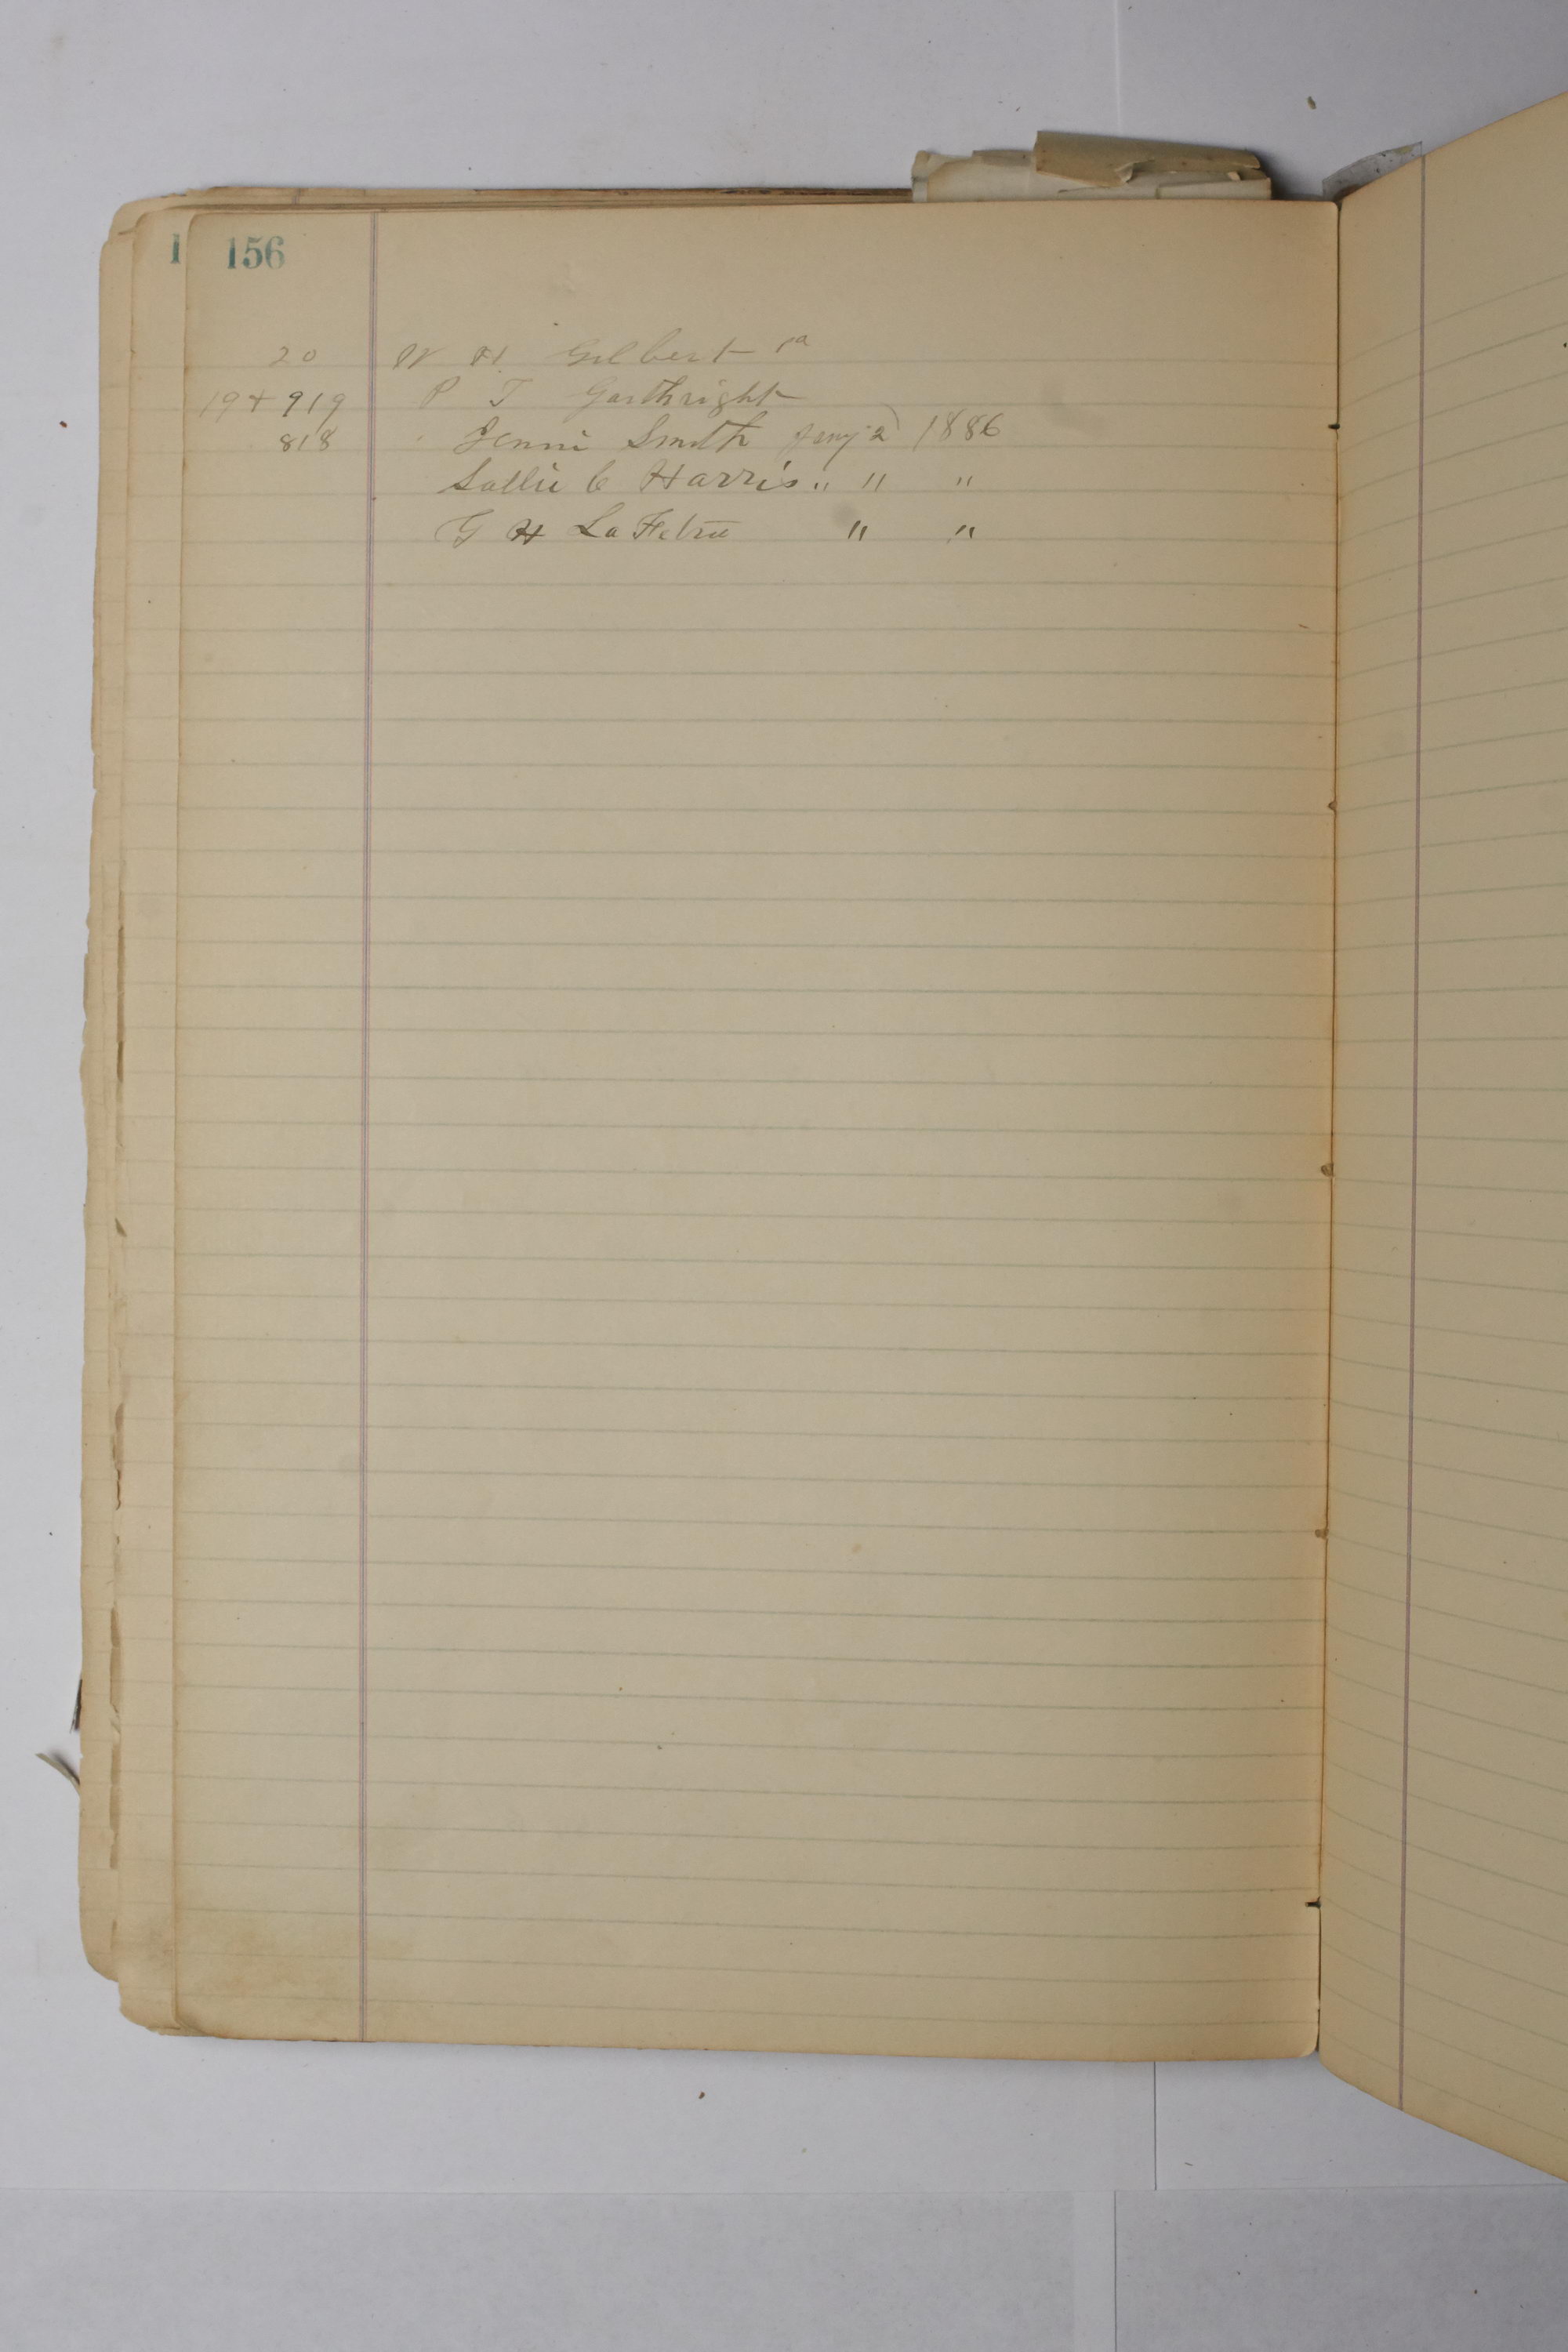 156
20 W H Gilbert Pa
19 + 919 P T Garthright
818 Jenni Smith Jany 2 1886
Sallie C Harris " " "
G H La Fetra " "